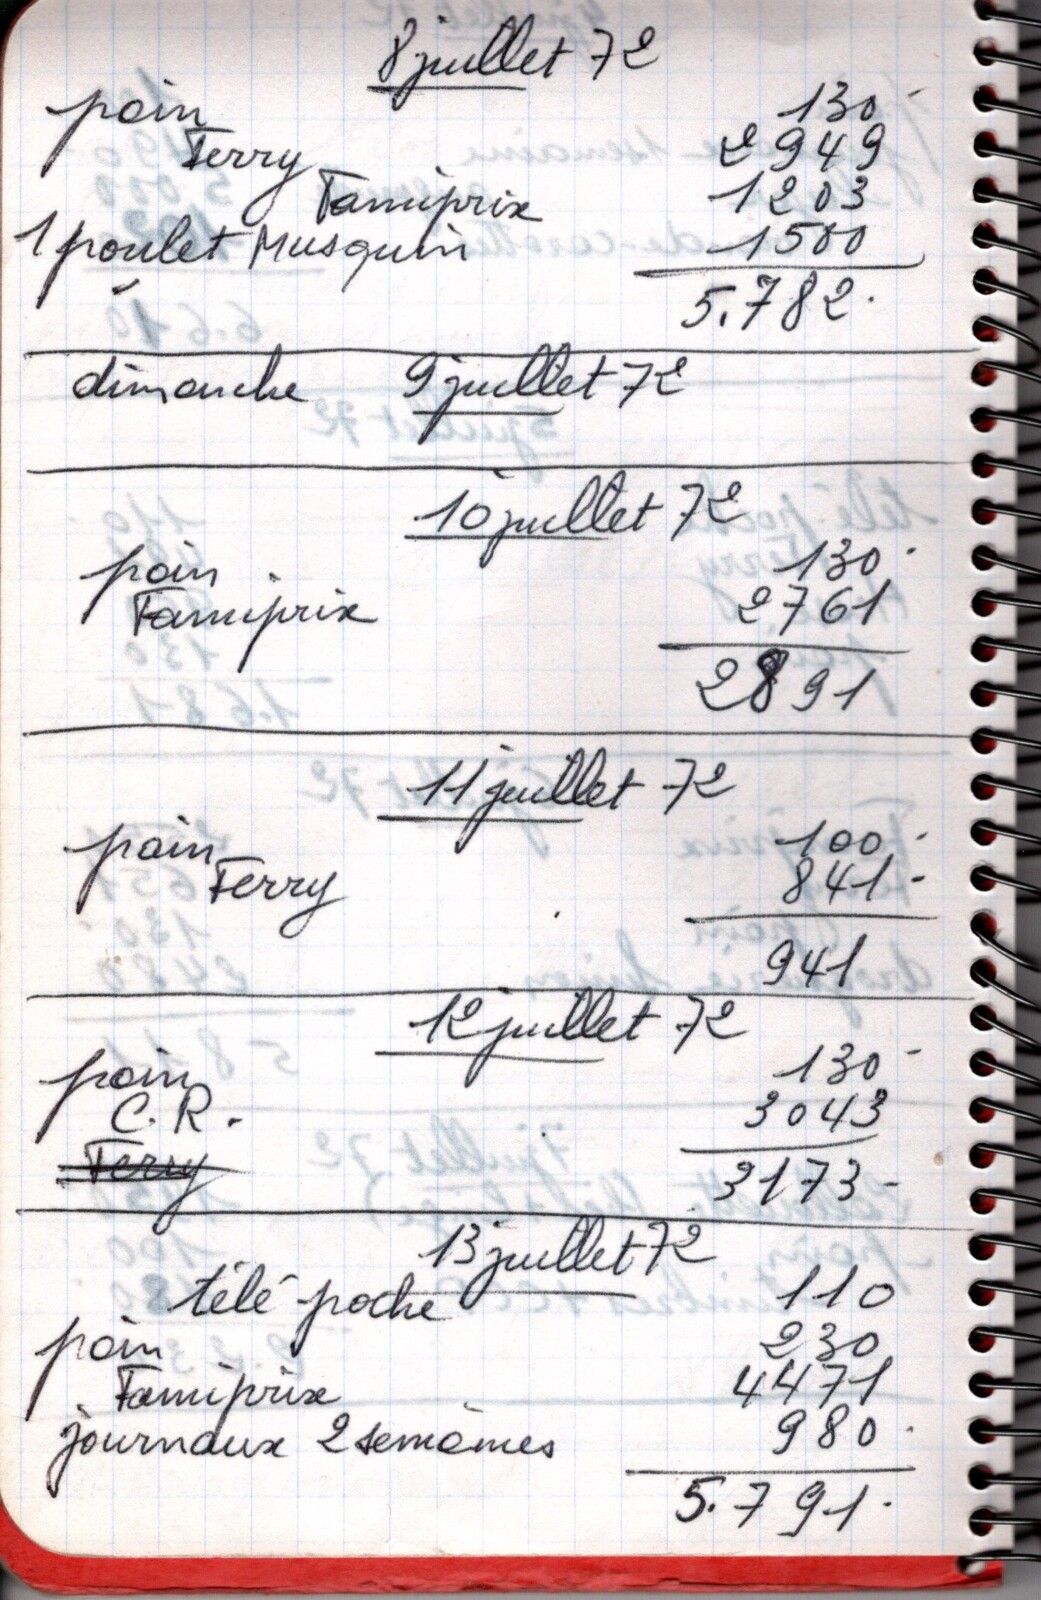 8 juillet 72
pain 130
Ferry 2949
Famiprix 1203
1 poulet Musquin 1500
5.782.
dimanche 9 juillet 72
10 juillet 72
pain 130
Famiprix 2761
2891
11 juillet 72
pain 100
Ferry 841
941
12 juillet 72
pain 130
C.R. 3043
Ferry
3173
13 juillet 72
télé poche 110
pain 230
Famiprix 4471
journaux 2 semaines 980
5.791.